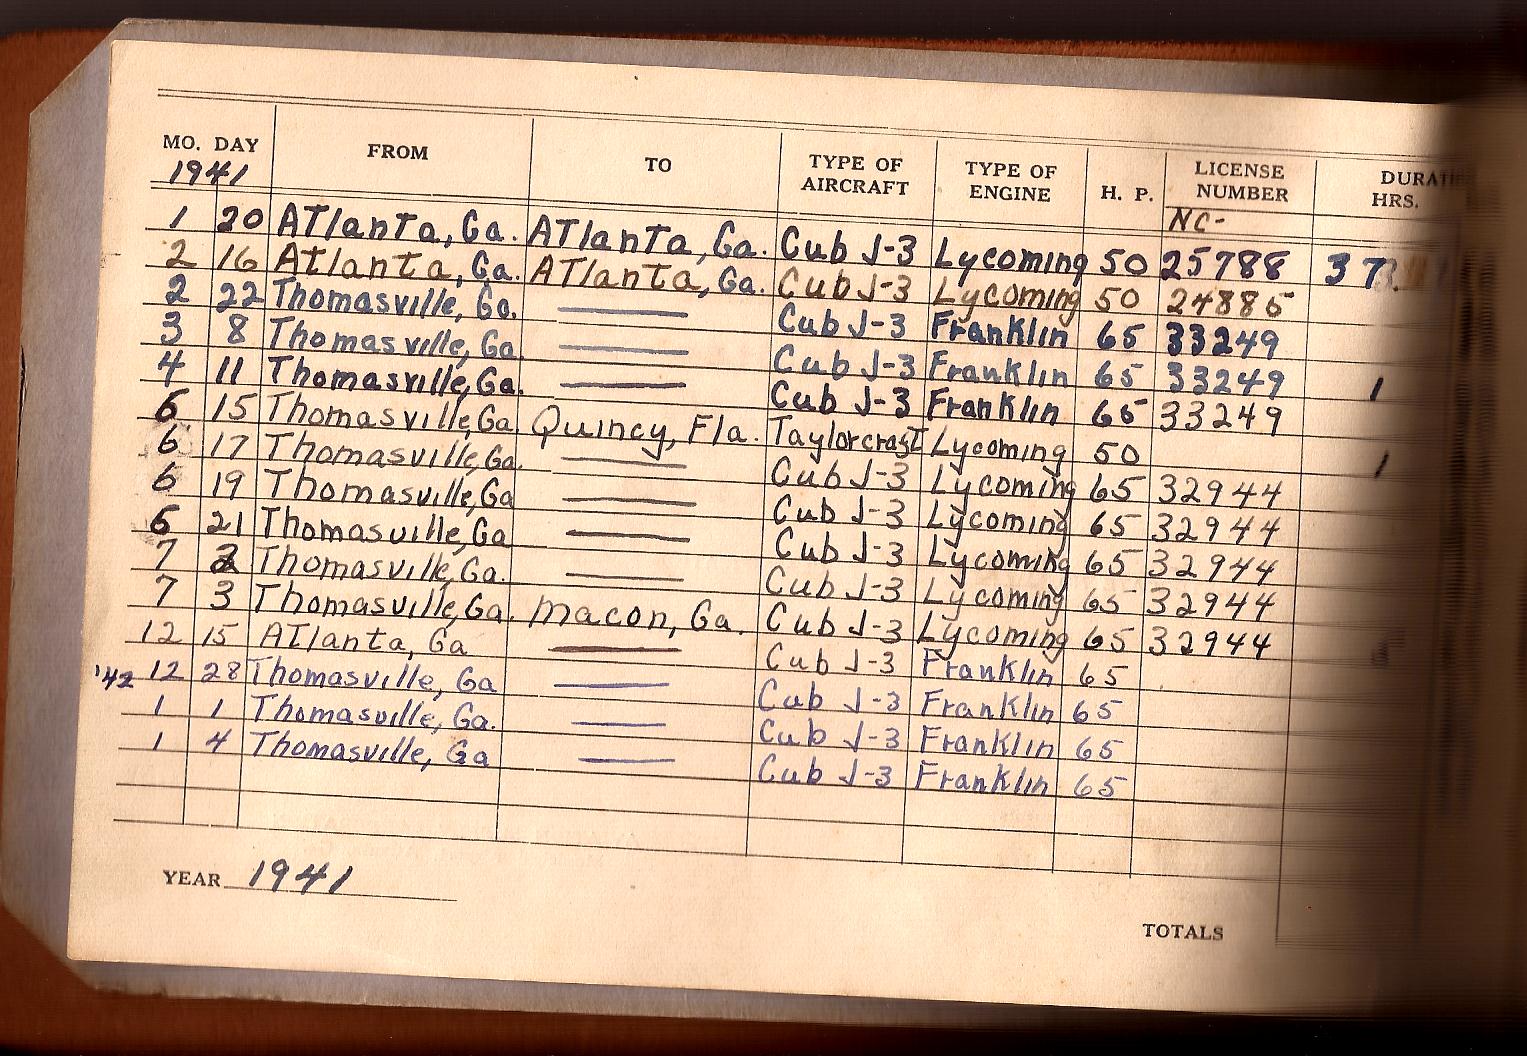 MO. DAY FROM TO TYPE OF AIRCRAFT TYPE OF ENGINE H. P. LICENSE NUMBER HRS.
1941 NC-
1 20 Atlanta, Ga. Atlanta, Ga. Cub J-3 Lycoming 50 25788 37
2 16 Atlanta, Ga. Atlanta, Ga. Cub J-3 Lycoming 50 24885
2 22 Thomasville, Ga. — Cub J-3 Franklin 65 33249
3 8 Thomasville, Ga — Cub J-3 Franklin 65 33249 1
4 11 Thomasville, Ga. — Cub J-3 Franklin 65 33249
6 15 Thomasville, Ga. Quincy, Fla. Taylorcraft Lycoming 50 1
6 17 Thomasville, Ga. — Cub J-3 Lycoming 65 32944
6 19 Thomasville, Ga — Cub J-3 Lycoming 65 32944
6 21 Thomasville, Ga — Cub J-3 Lycoming 65 32944
7 2 Thomasville, Ga. — Cub J-3 Lycoming 65 32944
7 3 Thomasville, Ga. Macon, Ga. Cub J-3 Lycoming 65 32944
12 15 Atlanta, Ga — Cub J-3 Franklin 65
'42 12 28 Thomasville, Ga — Cub J-3 Franklin 65
1 1 Thomasville, Ga. — Cub J-3 Franklin 65
1 4 Thomasville, Ga — Cub J-3 Franklin 65
YEAR 1941
TOTALS